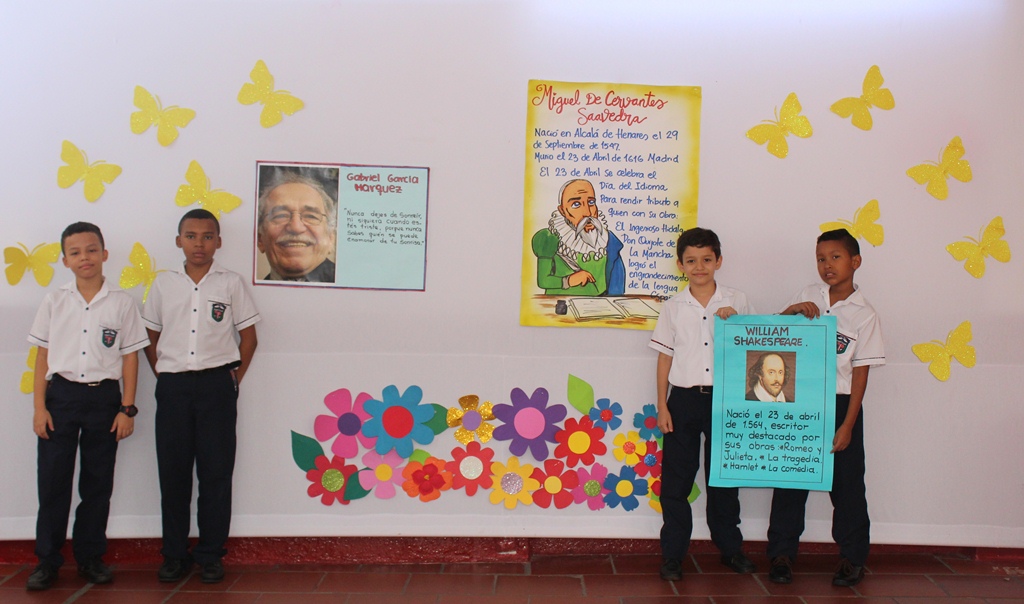 Gabriel García
Márquez
"Nunca dejes de Sonreír,
ni siquiera cuando es-
tés triste, porque nunca
sabes quién se puede
enamorar de tu Sonrisa."
Miguel De Cervantes
Saavedra
Nació en Alcalá de Henares el 29
de Septiembre de 1547.
Murio el 23 de Abril de 1616 Madrid
El 23 de Abril se celebra el
Día del Idioma
Para rendir tributo a
quien con su Obra,
El Ingenioso Hidalgo
Don Quijote de
La Mancha
logró el
engrandecimiento
de la lengua
WILLIAM
SHAKESPEARE.
Nació el 23 de abril
de 1.564, escritor
muy destacado por
sus obras: *Romeo y
Julieta. * La tragedia
*Hamlet * La comedia.